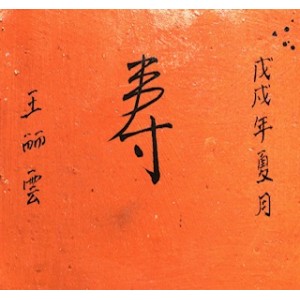 戊戌年夏月
寿
王丽雲